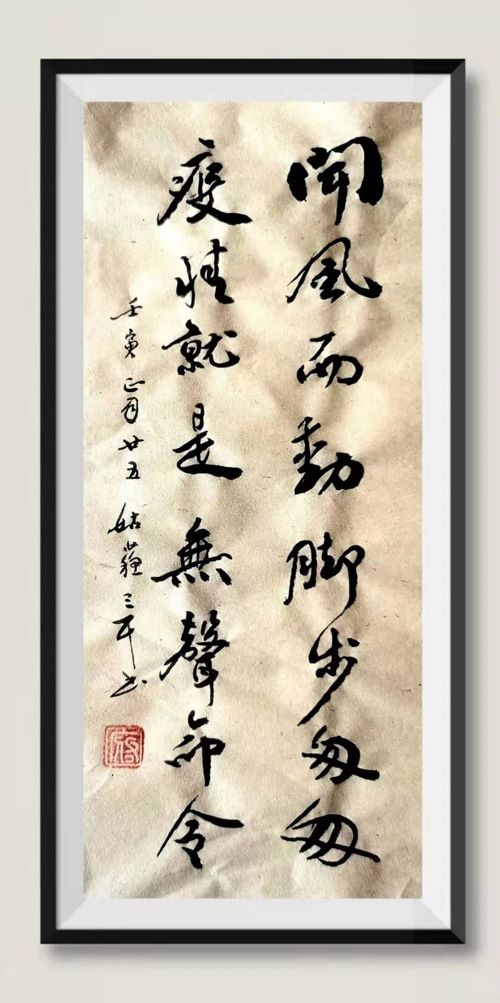 聞風而動脚步匆匆
疫情就是無聲命令
壬寅正月廿五 姑蘇三平书